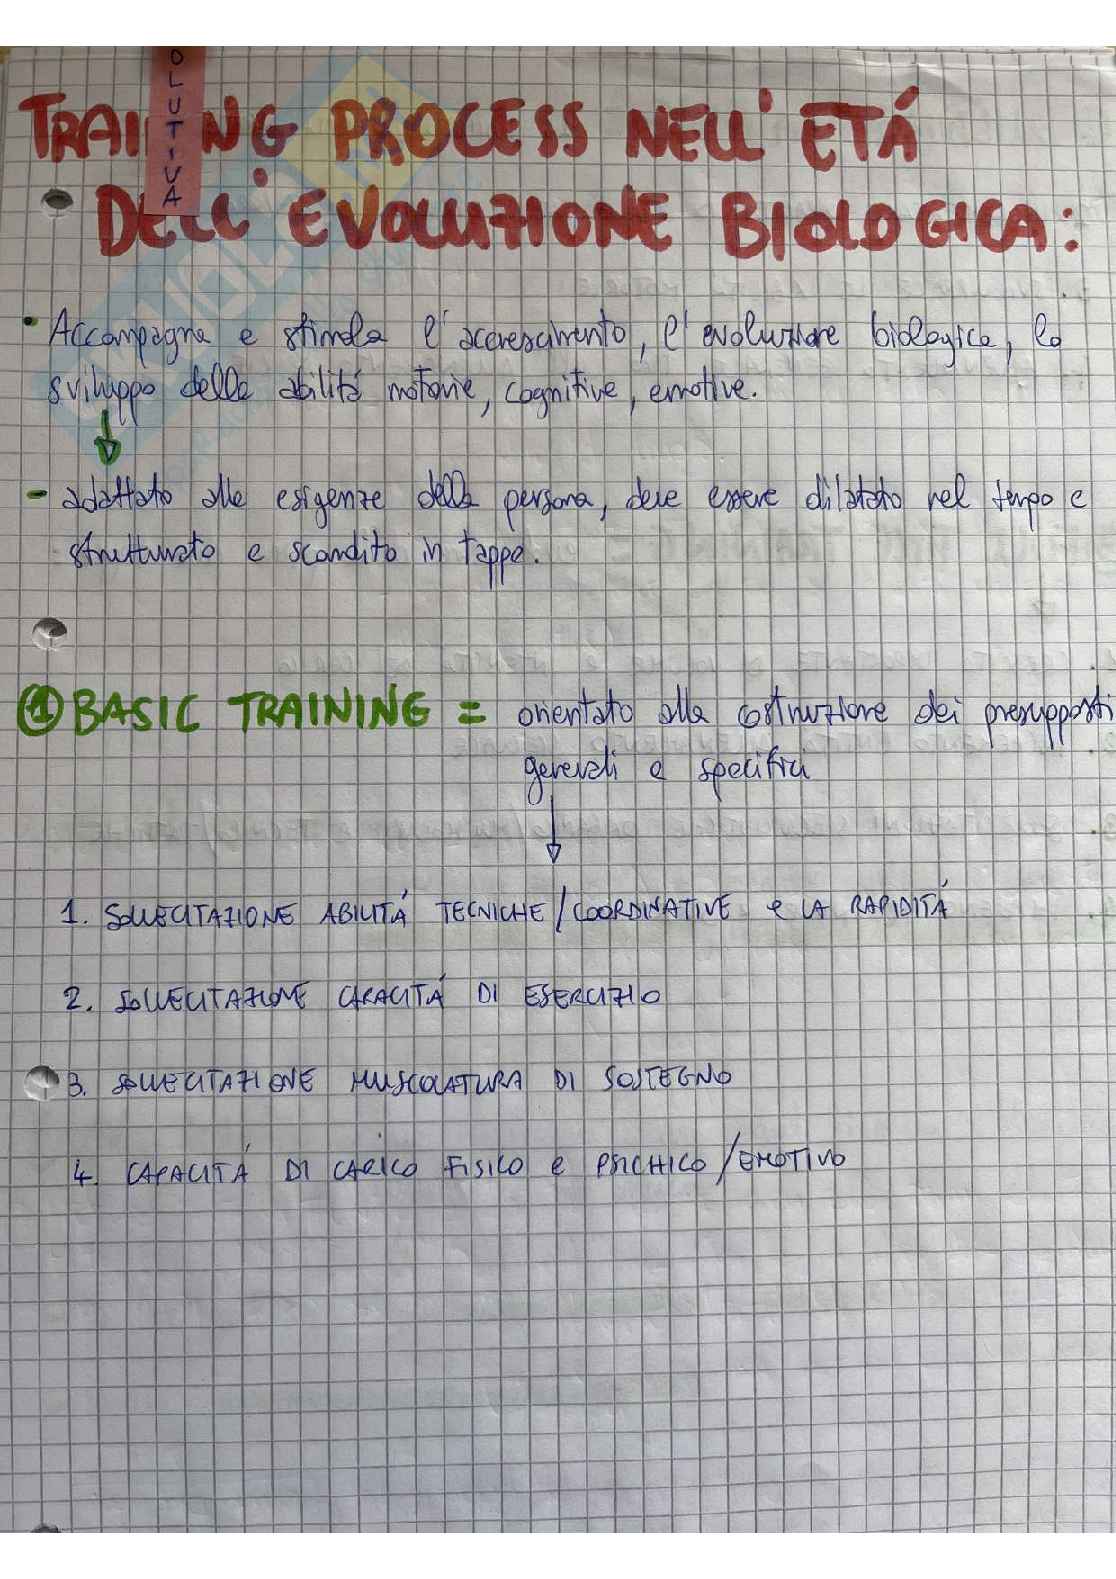 OLUTIVA
TRAINING PROCESS NELL' ETÁ
DELL' EVOLUZIONE BIOLOGICA:
• Accompagna e stimola l'accrescimento, l'evoluzione biologica, lo
sviluppo delle abilitá motorie, cognitive, emotive.
- adattato alle esigenze della persona, deve essere dilatato nel tempo e
strutturato e scandito in tappe.
① BASIC TRAINING = orientato alla costruzione dei presupposti
generali e specifici
1. SOLLECITAZIONE ABILITÁ TECNICHE/COORDINATIVE e LA RAPIDITÁ
2. SOLLECITAZIONE CAPACITÁ DI ESERCIZIO
3. SOLLECITAZIONE MUSCOLATURA DI SOSTEGNO
4. CAPACITÁ DI CARICO FISICO e PSICHICO/EMOTIVO